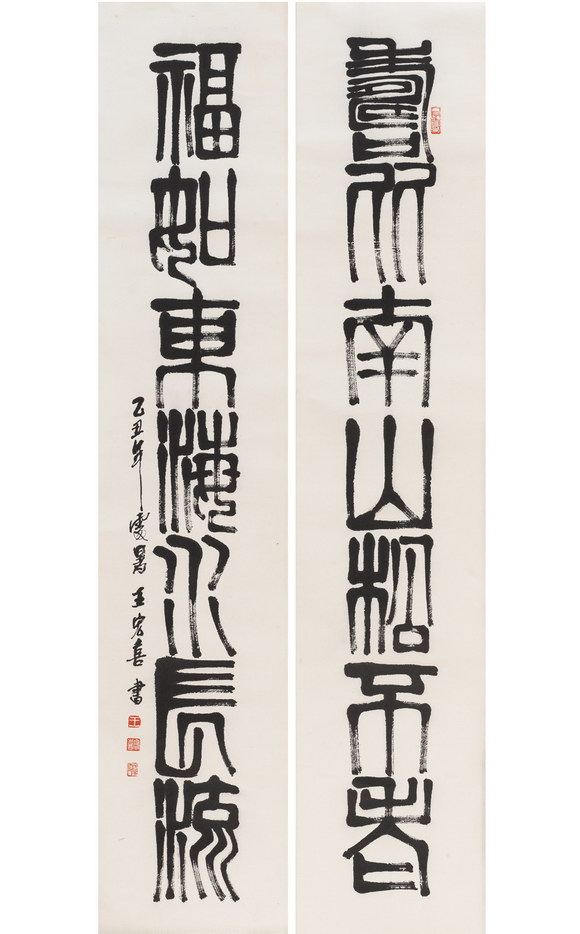 壽比南山松不老
福如東海水長流
乙丑年暑王宏喜書
王